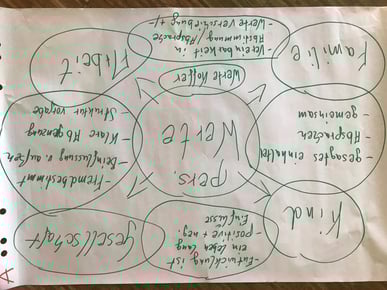 Kind
-Entwicklung ist
ein Leben lang
-positive + neg.
Einflüsse
Gesellschaft
- gesagtes einhalten
- Absprachen
- gemeinsam
pers.
Werte
-Fremdbestimmt
-Beinflussung v. außen
-Klare Abgrenzung
-Struktur vorgabe
Werte Koffer
Familie
-Vereinbarkeit in
Abstimmung / Absprache
-Werteverschiebung +/-
Arbeit